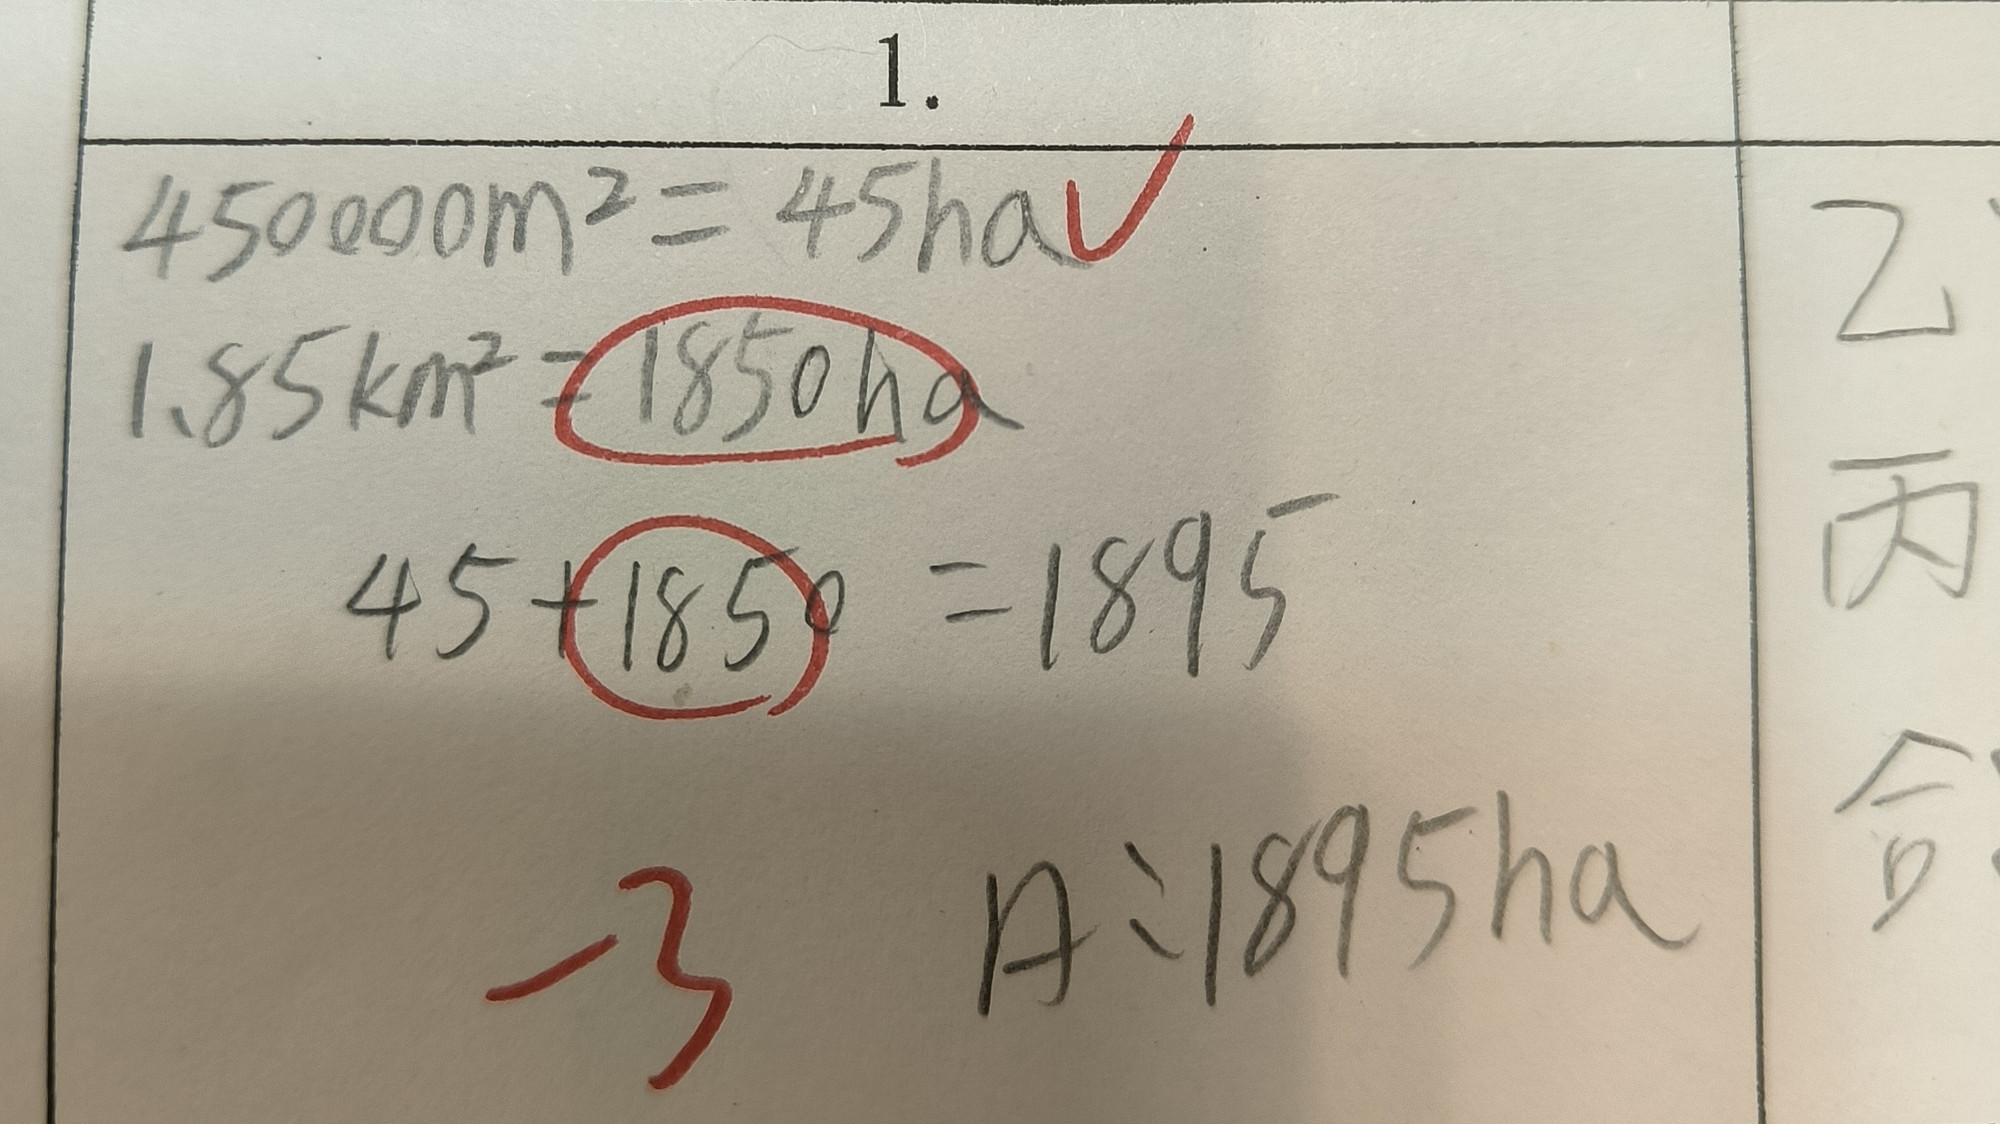 1.
450000m² = 45ha
1.85km² = 1850ha
45+1850 = 1895
-3
A:1895ha
乙
丙